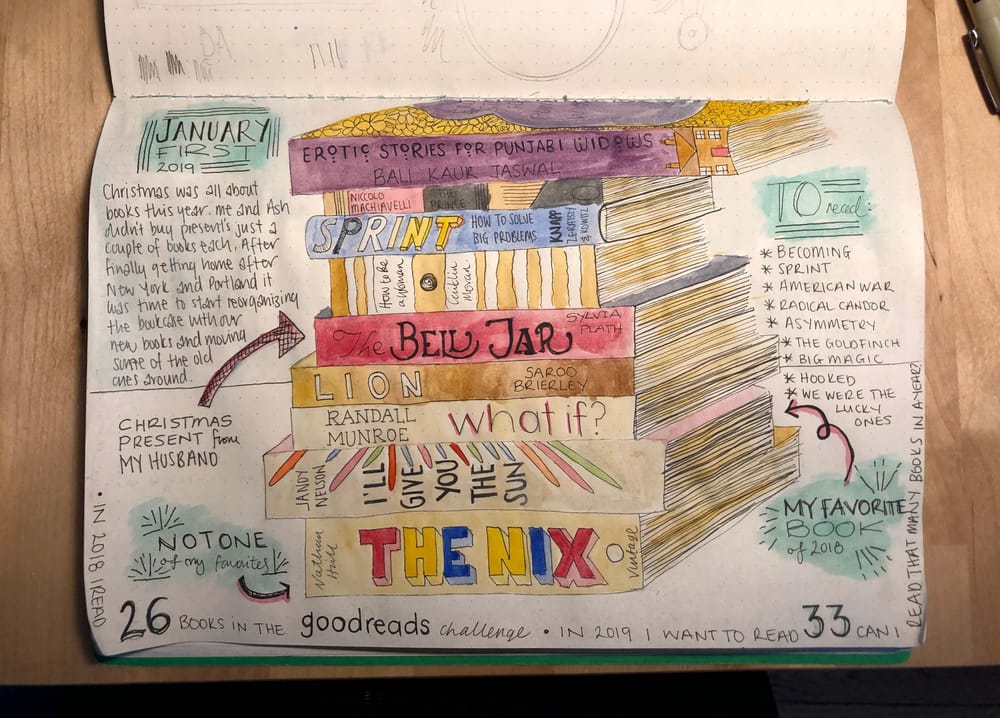 JANUARY
FIRST
2019
Christmas was all about
books this year. me and Ash
didn't buy present's just a
couple of books each. After
finally getting home after
New York and Portland it
was time to start reorganizing
the bookcase with our
new books and moving
some of the old
ones around.
CHRISTMAS
PRESENT from
MY HUSBAND
NOT ONE
of my favorites
EROTIC STORIES FOR PUNJABI WIDOWS
BALI KAUR JASWAL
NICCOLO
MACHIAVELLI
THE
PRINCE
SPRINT
HOW TO SOLVE
BIG PROBLEMS
KNAPP
ZERATSKY
& KOWITZ
How to Be
a Woman
Caitlin
Moran
The BELL JAR
SYLVIA
PLATH
LION
SAROO
BRIERLEY
RANDALL
MUNROE
what if?
JANDY
NELSON
I'LL
GIVE
YOU
THE
SUN
Nathan
Hill
THE NIX
Vintage
TO read:
* BECOMING
* SPRINT
* AMERICAN WAR
* RADICAL CANDOR
* ASYMMETRY
* THE GOLDFINCH
* BIG MAGIC
* HOOKED
* WE WERE THE
LUCKY
ONES
MY FAVORITE
BOOK
of 2018
• IN 2018 I READ
26 BOOKS IN THE goodreads challenge • IN 2019 I WANT TO READ 33 CAN I
READ THAT MANY BOOKS IN A YEAR?